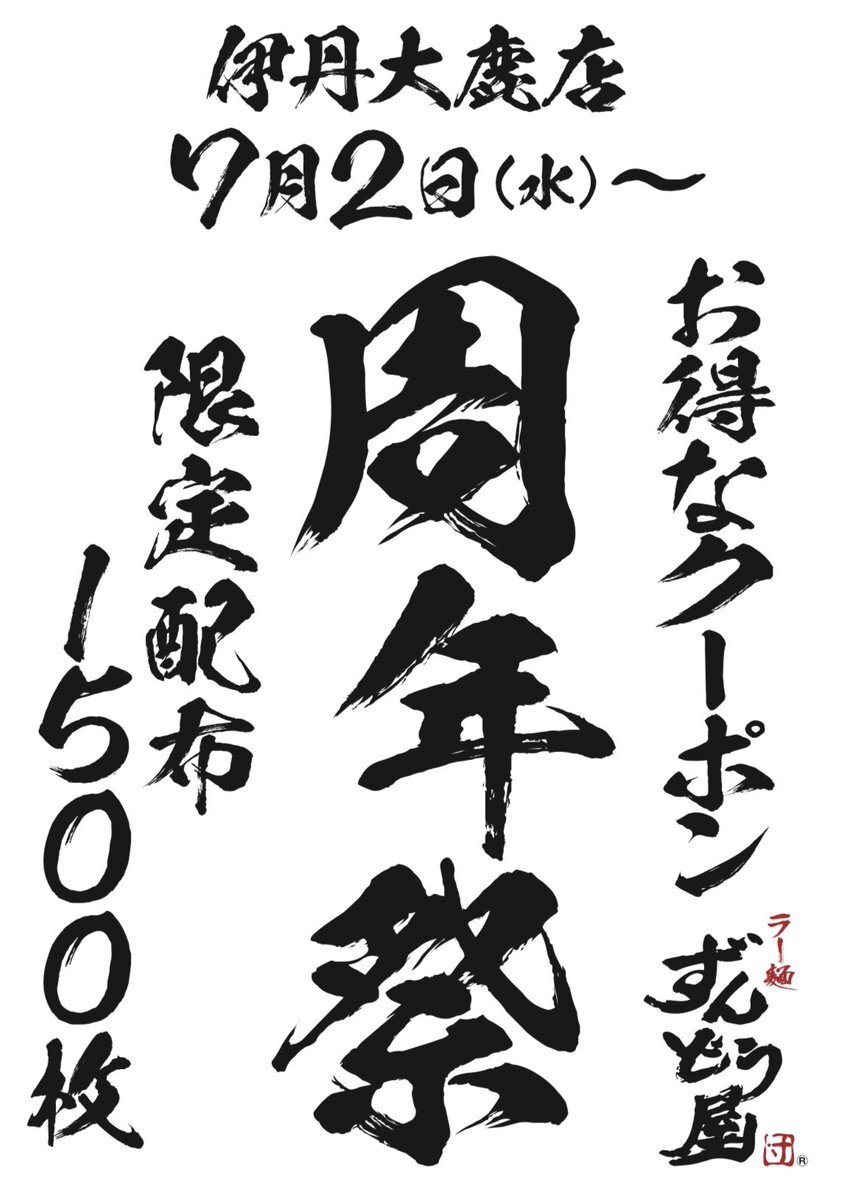 伊丹大鹿店
7月2日(水)～
お得なクーポン
周年祭
限定配布
1500枚
ラー麺
ずんどう屋
団
®